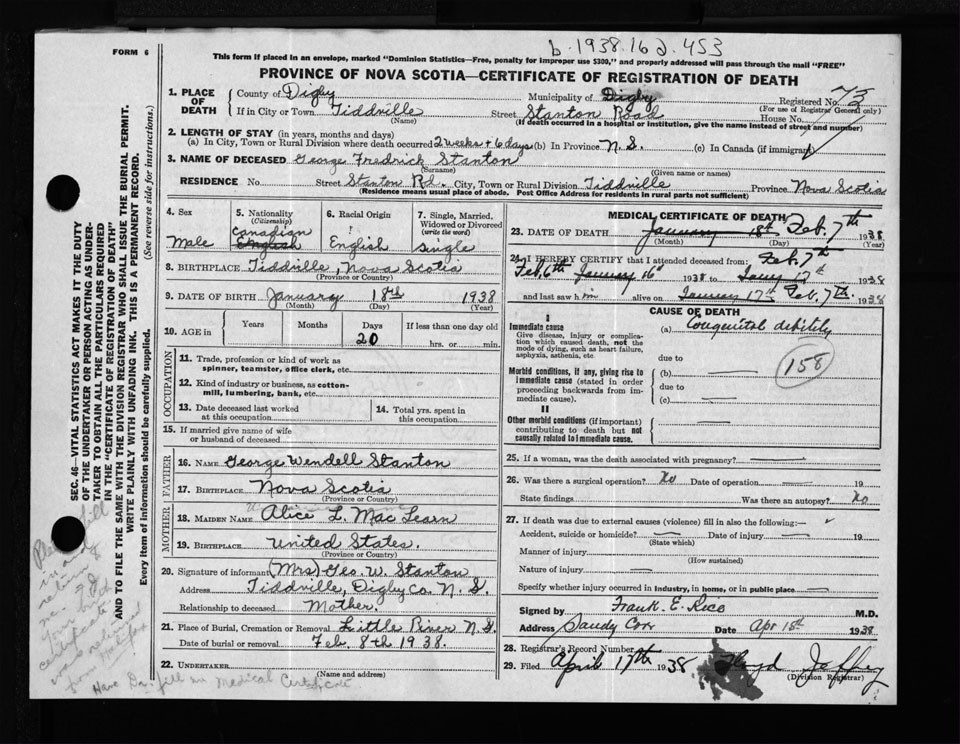 b. 1938. 162. 453
FORM 6
This form if placed in an envelope, marked "Dominion Statistics—Free, penalty for improper use $300," and properly addressed will pass through the mail "FREE"
PROVINCE OF NOVA SCOTIA—CERTIFICATE OF REGISTRATION OF DEATH
1. PLACE OF DEATH
County of Digby Municipality of Digby Registered No. 73
(For use of Registrar General only)
If in City or Town Tiddville Street Stanton Road House No.
(Name) (If death occurred in a hospital or institution, give the name instead of street and number)
2. LENGTH OF STAY (in years, months and days)
(a) In City, Town or Rural Division where death occurred 2 weeks + 6 days (b) In Province N. S. (c) In Canada (if immigrant)
3. NAME OF DECEASED George Fredrick Stanton
(Surname) (Given name or names)
RESIDENCE No. Street Stanton Rd. City, Town or Rural Division Tiddville Province Nova Scotia
(Residence means usual place of abode. Post Office Address for residents in rural parts not sufficient)
4. Sex 5. Nationality (Citizenship) 6. Racial Origin 7. Single, Married, Widowed or Divorced (write the word)
Male Canadian English English Single
8. BIRTHPLACE Tiddville, Nova Scotia
(Province or Country)
9. DATE OF BIRTH January 18th 1938
(Month) (Day) (Year)
10. AGE in Years Months Days If less than one day old
20 hrs. or min.
OCCUPATION
11. Trade, profession or kind of work as spinner, teamster, office clerk, etc.
12. Kind of industry or business, as cotton-mill, lumbering, bank, etc.
13. Date deceased last worked at this occupation
14. Total yrs. spent in this occupation
15. If married give name of wife or husband of deceased
FATHER
16. NAME George Wendell Stanton
17. BIRTHPLACE Nova Scotia
(Province or Country)
MOTHER
18. MAIDEN NAME Alice L. Mac Learn
19. BIRTHPLACE United States.
(Province or Country)
20. Signature of informant (Mrs) Geo. W. Stanton
Address Tiddville, Digby Co. N. S.
Relationship to deceased Mother.
21. Place of Burial, Cremation or Removal Little River N. S.
Date of burial or removal Feb. 8th 1938.
22. UNDERTAKER
(Name and address)
MEDICAL CERTIFICATE OF DEATH
23. DATE OF DEATH January 18th Feb. 7th 1938
(Month) (Day) (Year)
24. I HEREBY CERTIFY that I attended deceased from: Feb. 7th
Feb. 6th January 16th 1938 to 17th 1938
and last saw him alive on 17th Feb. 7th. 1938
CAUSE OF DEATH
I
Immediate cause
Give disease, injury or complication which caused death, not the mode of dying, such as heart failure, asphyxia, asthenia, etc
(a) Congenital debility
due to
158
Morbid conditions, if any, giving rise to immediate cause (stated in order proceeding backwards from immediate cause).
(b)
due to
(c)
II
Other morbid conditions (if important) contributing to death but not causally related to immediate cause.
25. If a woman, was the death associated with pregnancy?
26. Was there a surgical operation? No Date of operation 19
State findings Was there an autopsy? No
27. If death was due to external causes (violence) fill in also the following:—
Accident, suicide or homicide? Date of injury 19
(State which)
Manner of injury
(How sustained)
Nature of injury
Specify whether injury occurred in industry, in home, or in public place
Signed by Frank E. Rice M.D.
Address Sandy Cove Date Apr 18th 1938
28. Registrar's Record Number
29. Filed April 19th 1938 Floyd
(Division Registrar)
SEC. 46—VITAL STATISTICS ACT MAKES IT THE DUTY
OF THE UNDERTAKER OR PERSON ACTING AS UNDER-
TAKER TO OBTAIN ALL THE PARTICULARS REQUIRED
IN THE "CERTIFICATE OF REGISTRATION OF DEATH"
AND TO FILE THE SAME WITH THE DIVISION REGISTRAR WHO SHALL ISSUE THE BURIAL PERMIT.
WRITE PLAINLY WITH UNFADING INK. THIS IS A PERMANENT RECORD.
Every item of information should be carefully supplied. (See reverse side for instructions.)
Have Dr. fill in Medical Certificate